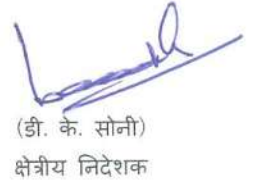 (डी. के. सोनी)
क्षेत्रीय निदेशक